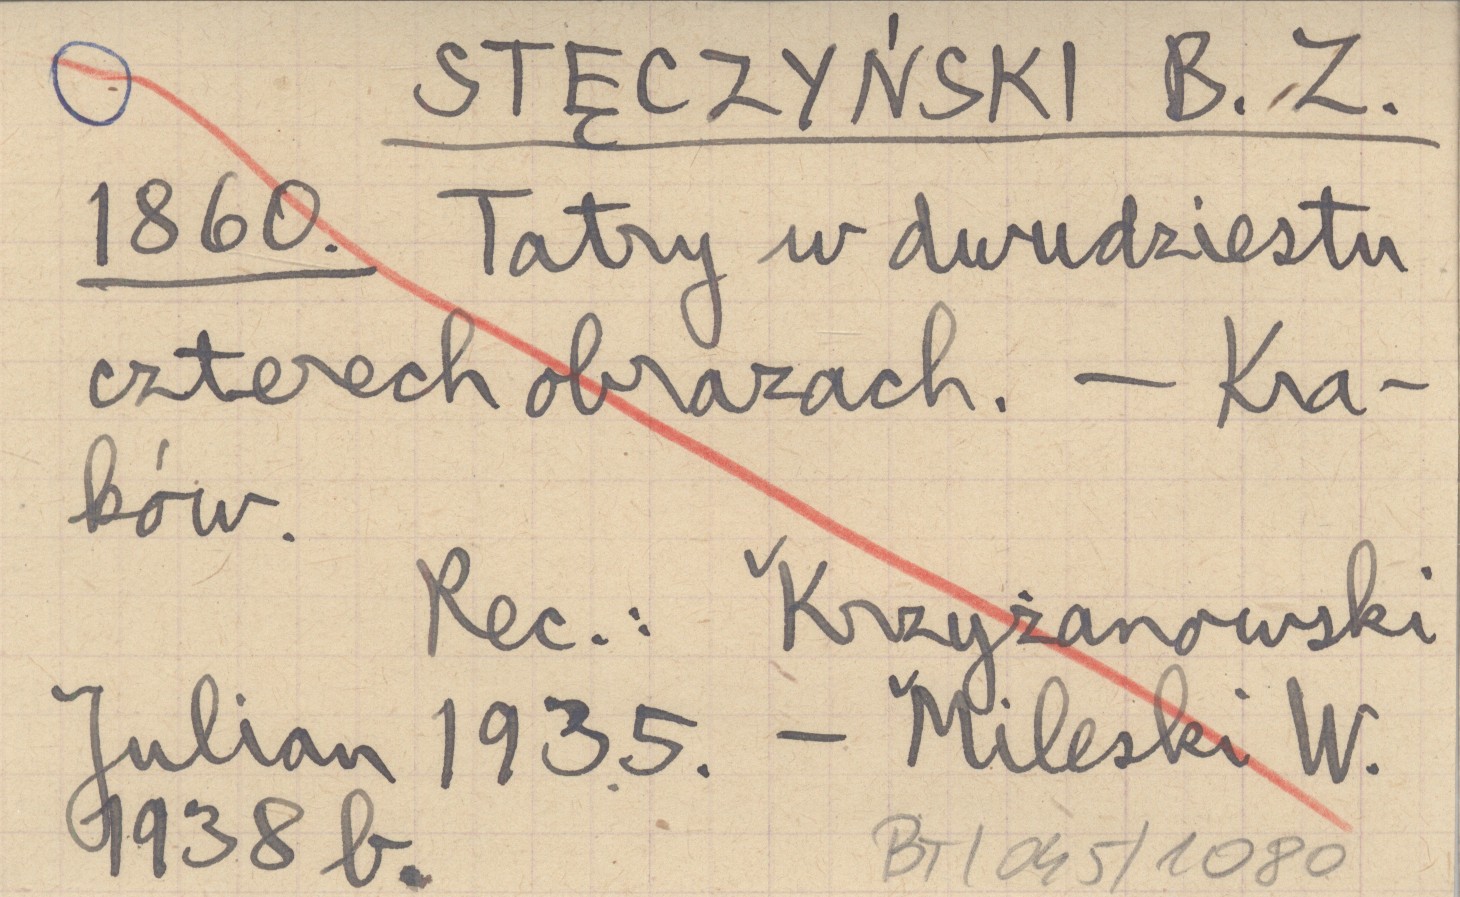 STĘCZYŃSKI B. Z.
1860. Tatry w dwudziestu
czterech obrazach. — Kra-
ków.
Rec.: Krzyżanowski
Julian 1935. — Mileski W.
1938 b.
BT/045/1080